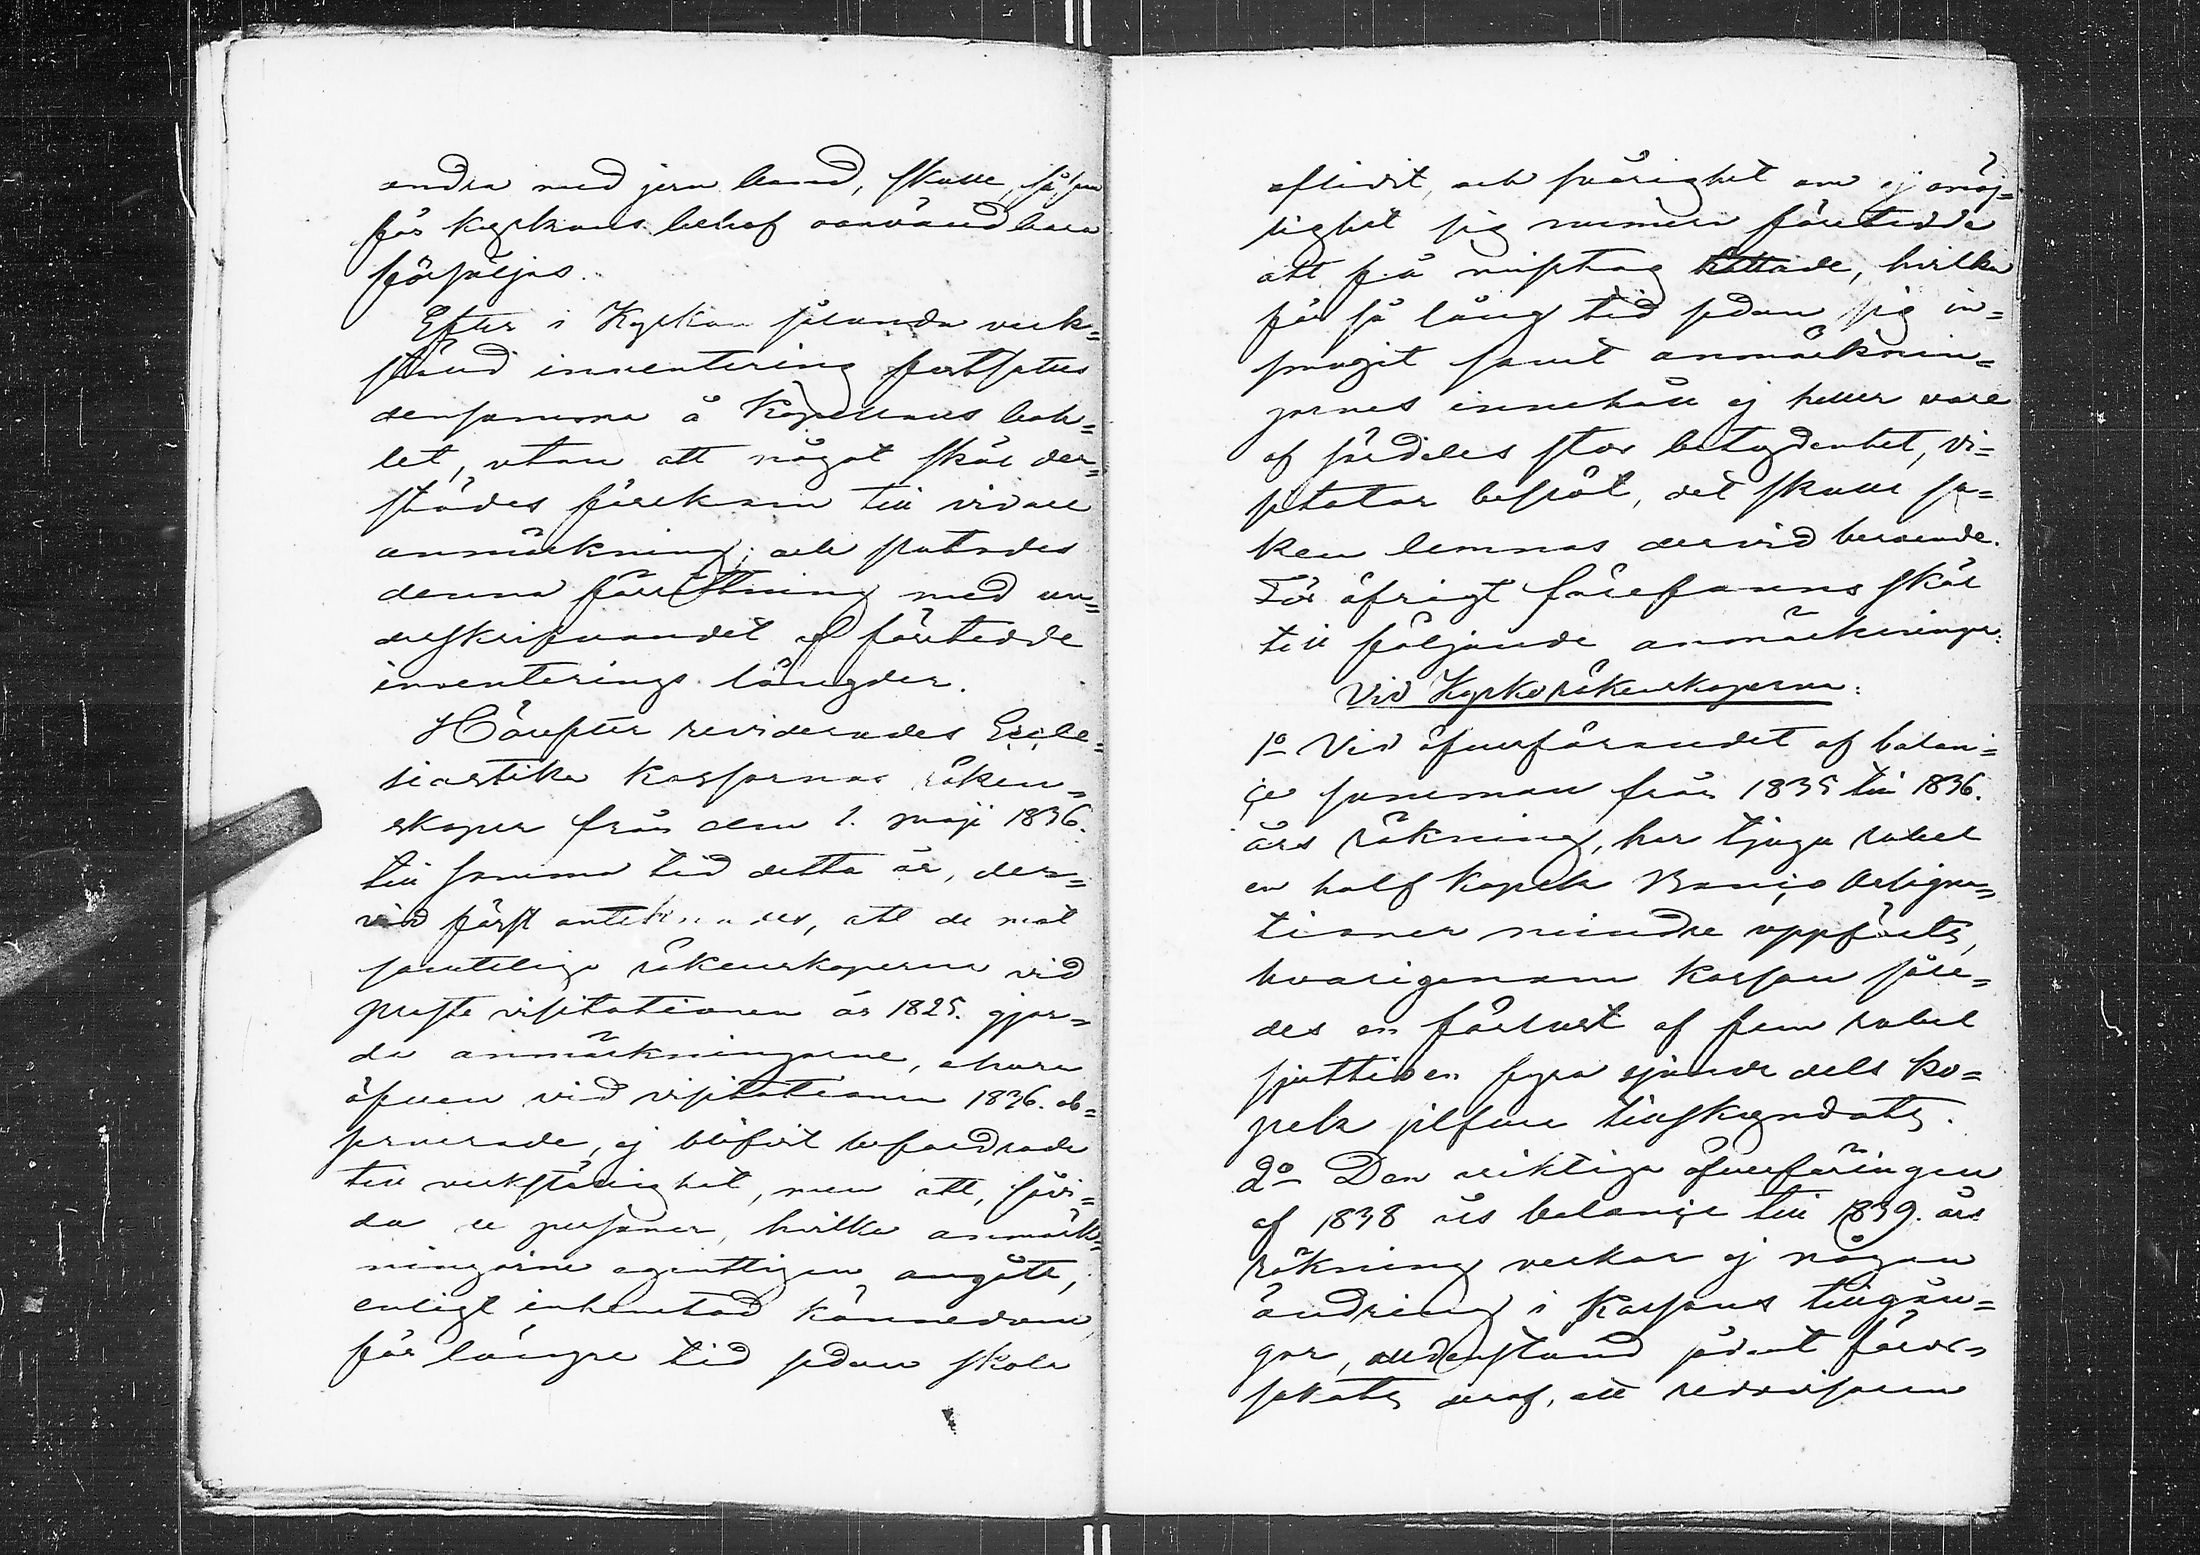 andra med jern band, skulle, såsom
för Kyrkans behof oanvändbara
försäljas.
Efter i Kyrkan sålunda verk=
stäld inventering fortsattes
densamma å Kapellans bohl=
let, utan att något skäl der=
städes förekom till vidare
anmärkning; och slutades
denna förrättning med un=
derskrifvandet af företedde
inventerings längder.
Härefter reviderades Eccle=
siastike Kassornas räken=
skaper från den 1. Maji 1836.
till samma tid detta år, der=
vid först antecknades, att de mot
samtelige räkenskaperne vid
Proste visitationen år 1825. gjor=
de anmärkningarne, ehuru
äfven vid visitationen 1836. ob=
serverade, ej blifvit befordrade
till verkställighet, men att, såvi=
da de personer, hvilka anmärk=
ningarne egentligen angått,
enligt inhemtad kännedom,
för längre tid sedan skola
aflidit, och svårighet om ej omöj=
lighet sig numera företedde
att få misstag rättade, hvilka
för så lång tid sedan sig in=
smugit samt anmärknin=
garnes innehåll ej heller vore
af särdeles stor betydenhet, Vi=
sitator beslöt, det skulle sa=
ken lemnas dervid beroende.
För öfrigt förefanns skäl
till följande anmärkningar:
Vid Kyrkoräkenskaperne:
1o Vid öfverförandet af balan=
ce summan från 1835 till 1836.
års räkning, har tjugu rubel
en half kopek Banço Assigna=
tioner mindre uppförts,
hvarigenom Kassan såle=
des en förlust af fem rubel
sjuttioen fyra sjunde dels ko=
pek silfver tillskyndats.
2o Den oriktiga öfverföringen
af 1838 års balançe till 1839. års
räkning verkar ej någon
ändring i Kassans tillgån=
gar, alldenstund sådant föror=
sakats deraf, att redovisaren